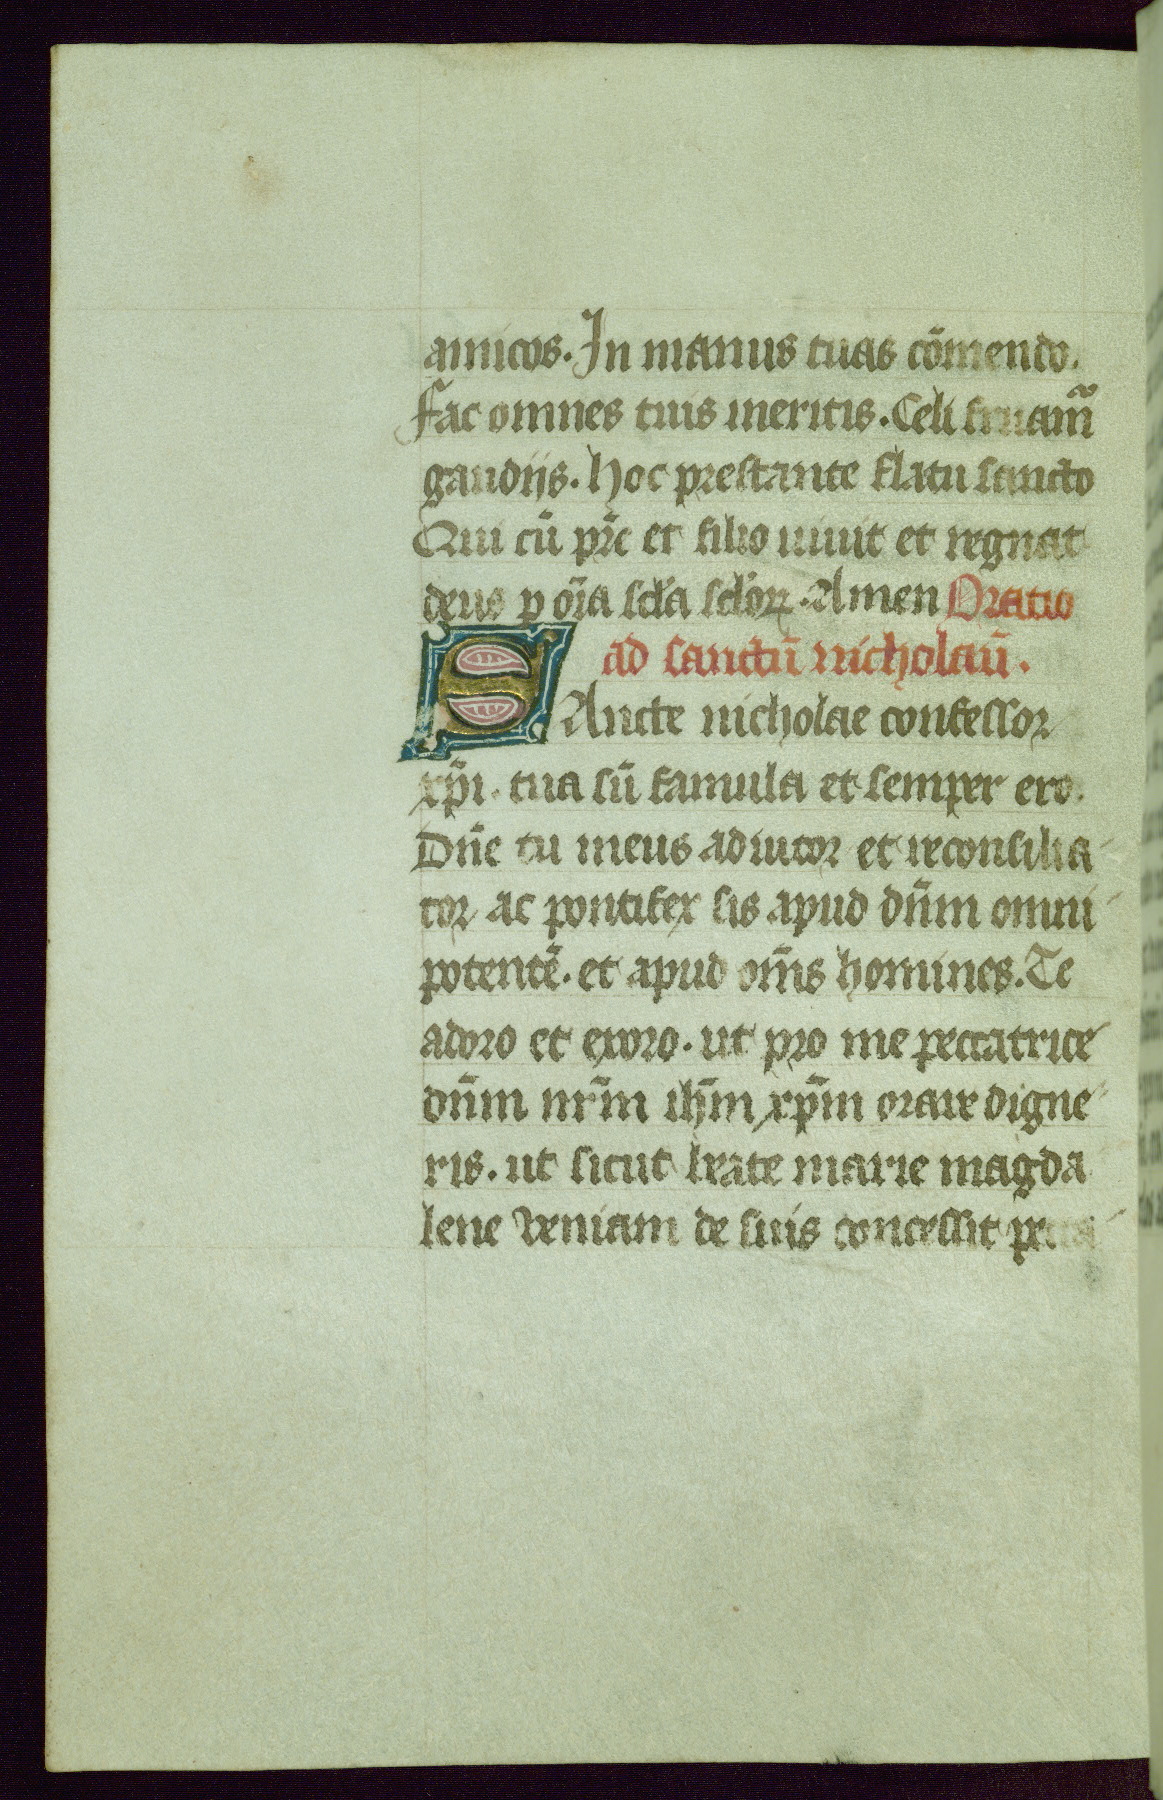 amicos. In manus tuas cōmendo.
Fac omnes tuis meritis. Celi fruam̃
gaudijs. hoc prestante flatu sancto
Qui cū pr̄e et filio uiuit et regnat
deus p om̄a sc̄la sc̄lorꝝ. Amen Oratio
ad sanctū nicholaū.
SAncte nicholae confessor
xp̄i. tua sū famula et semper ero.
Dn̄e tu meus adiutor et reconsilia
tor ac pontifex sis apud dn̄m omni
potentē. et apud om̄s homines. Te
adoro et exoro. ut pro me peccatrice
dn̄m nr̄m ih̄m xp̄m orare digne
ris. ut sicut beate marie magda
lene veniam de suis concessit pecca